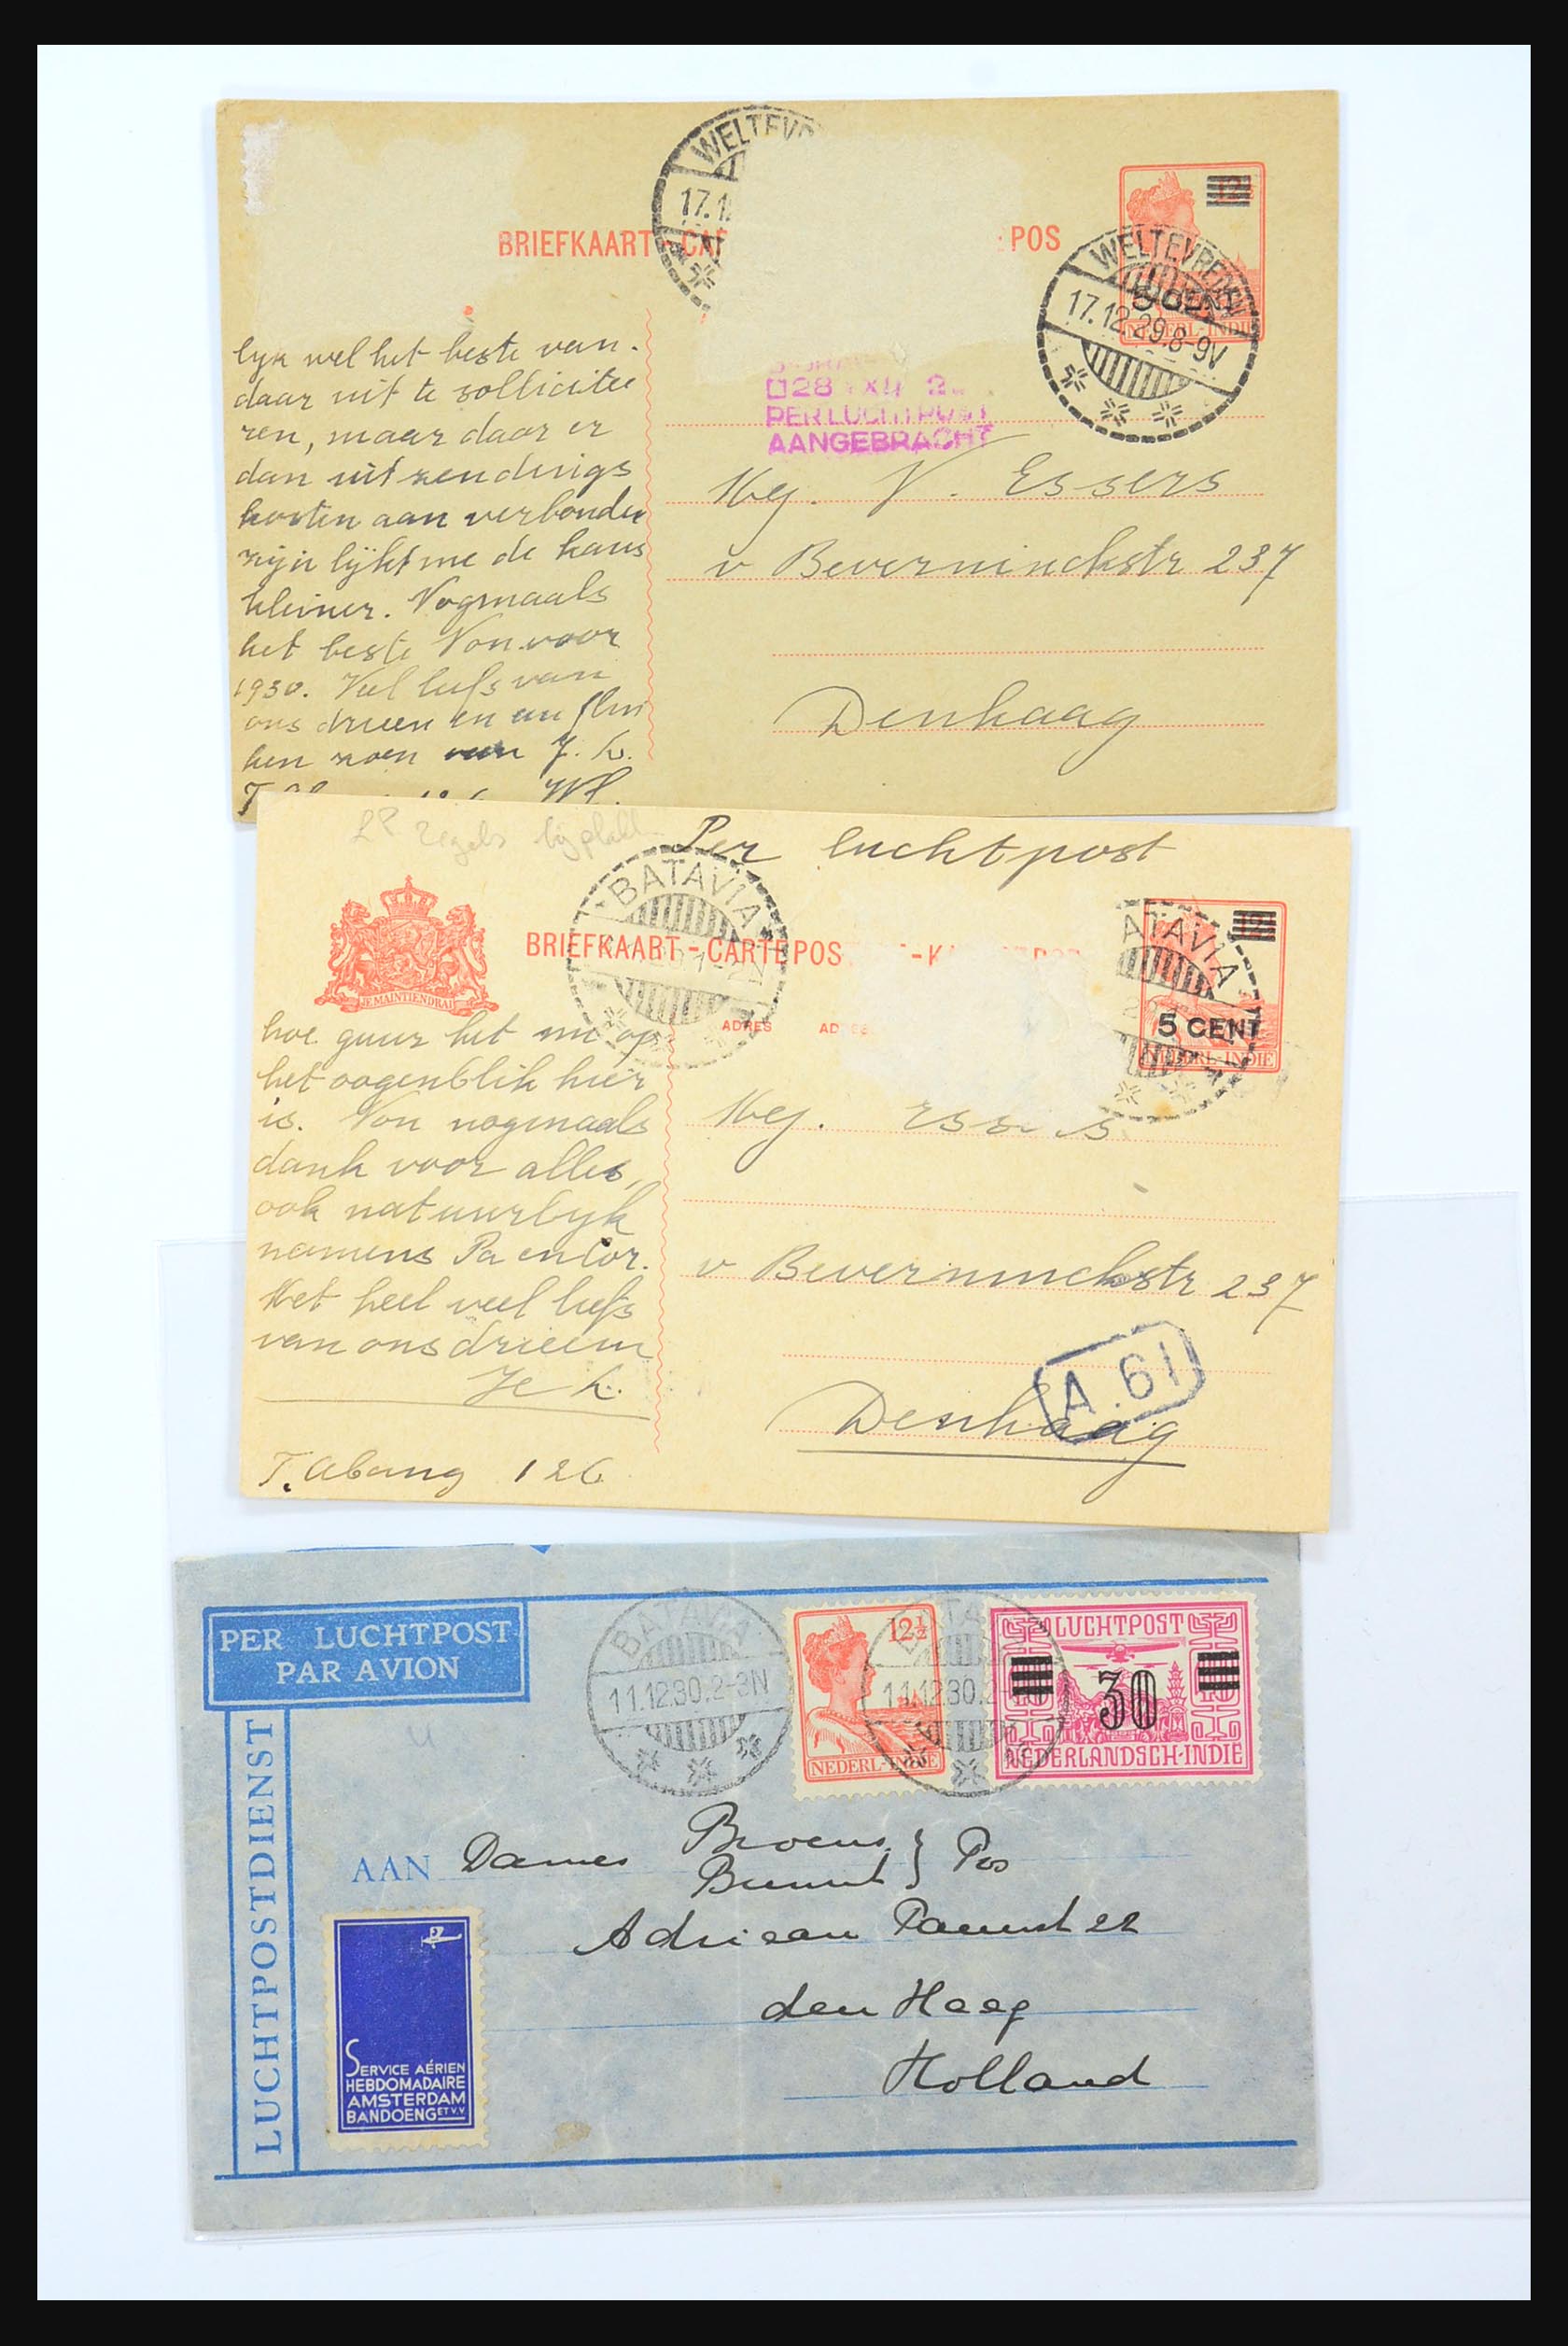 WELTEVR
17.12
BRIEFKAART - CAR
POS
12½
5 CENT
NEDERL-INDIE
WELTEVREDEN
17.12.29.8-9V
28 XII 2
PER LUCHTPOST
AANGEBRACHT
lijk wel het beste van-
daar uit te sollicitee
ren, maar daar er
dan uitzendings
kosten aan verbonden
zijn lijkt me de kans
kleiner. Nogmaals
het beste Von voor
1930. Veel liefs van
ons drieen en een flin
ken zoen van J. L.
Mej. V. Essers
v Beverninckstr 237
Denhaag
LP zegels bijplakk
Per luchtpost
BATAVIA
BRIEFKAART - CARTEPOS
-K
ADRES
JE MAINTIENDRAI
ATAVIA
5 CENT
NEDERL-INDIE
hoe guur het nu op
het oogenblik hier
is. Von nogmaals
dank voor alles,
ook natuurlijk
namens Pa en Cor.
Met heel veel liefs
van ons drieën
Je L.
T. Abang 126
Mej. Essers
v Beverninckstr 237
A.61
Denhaag
PER LUCHTPOST
PAR AVION
LUCHTPOSTDIENST
BATAVIA
11.12.30.2-3N
12½
NEDERL-INDIE
BATA
11.12.30.2-
LUCHTPOST
30
NEDERLANDSCH-INDIE
AAN Dames Broens } Pos
Adriaan Pauwstr 22
den Haag
Holland
SERVICE AÉRIEN
HEBDOMADAIRE
AMSTERDAM
BANDOENG ET V.V.